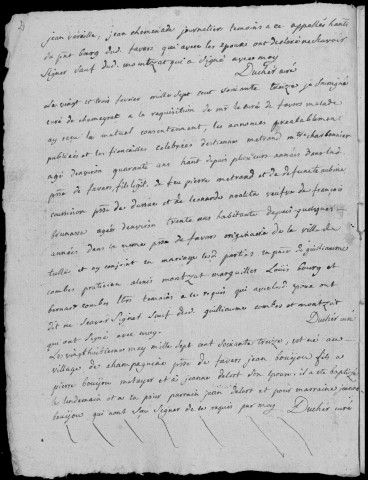 jean vareille, jean chemenade journalier temoins a ce appellés habts
du pnt bourg dud. favars qui avec les epoux ont declaré ne scavoir
signer sauf dud. montzat qui a signé avec moy
Duchér curé
Le vingt et trois fevrier mille sept cent soixante treize je soussigné
curé de chameyrat a la requisition de mr le curé de favars malade
ay reçu le mutuel consentement, les annonces prealablement
publiées et les fiancailles celebrées d'etienne matrand mtre charbonnier
agé denviron quarante ans habt depuis plusieurs années dans lad
psse de favars, fils legit. de feu pierre matrand et de defunte aubine
psse de et de leonarde noalitre veufve de françois
brunasse agée denviron trente ans habitante depuis quelques
années dans la meme psse de favars originaire de la ville de
tulle et ay conjoint en mariage lesd parties en pnce de guilleaume
combes praticien alexis montzat marguiller Louis bourg et
bernard combes ttes temoins a ce requis qui avec led. epoux ont
dit ne scavoir signer sauf dud. guilleaume combes et montzat
qui ont signé avec moy.
Duchér curé
Le vingt huitieme may mille sept cent soixante treize, est né au
village de champagnac psse de favars jean boujou fils a
pierre boujou metayer et a jeanne delort son epouse, il a eté baptisé
le lendemain et a eu pour parrain jean delort et pour marraine jeanne
boujou qui nont seu signer de ce requis par moy Duchér curé